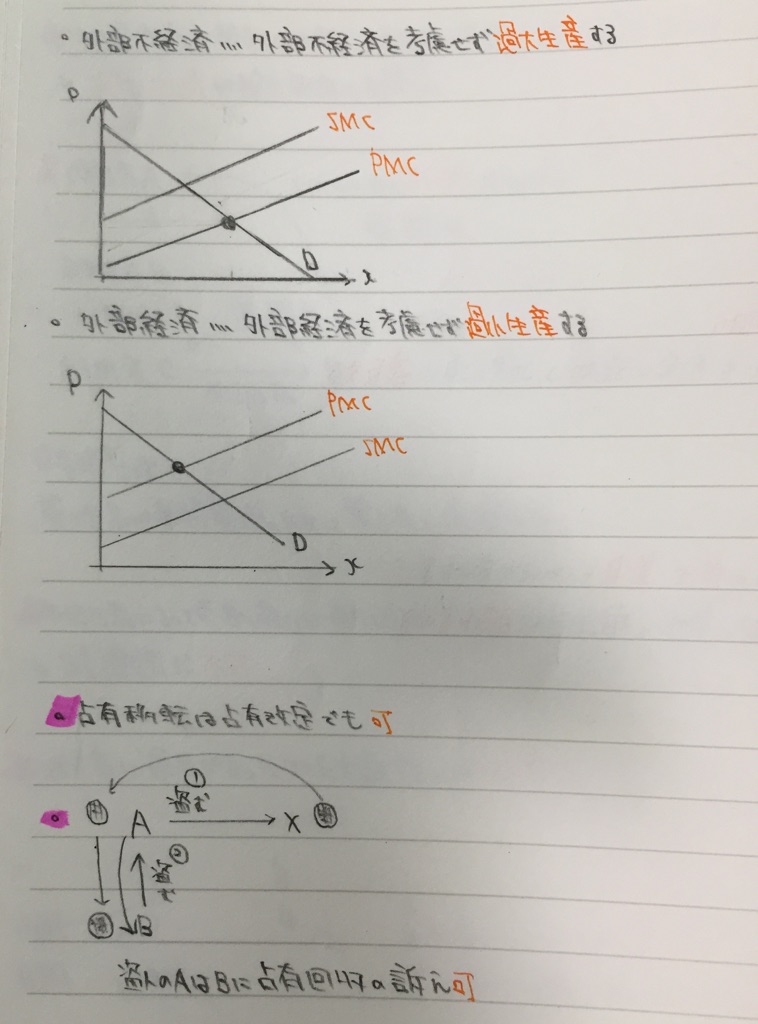 。外部不経済…. 外部不経済を考慮せず過大生産する
P
SMC
PMC
D
x
。外部経済…. 外部経済を考慮せず過小生産する
P
PMC
SMC
D
x
。占有移転は占有改定でも可
①
盗む
。 A X
②
盗む
B
盗人のAはBに占有回収の訴え可